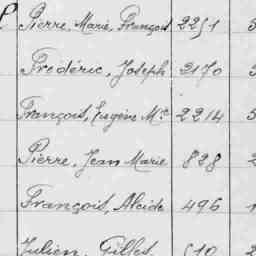 Pierre, Marie, François 2251
Frédéric, Joseph 2170
François, Eugène M. 2214
Pierre, Jean Marie 828 2
François, Alcide 496 1
Julien, Gilles 2